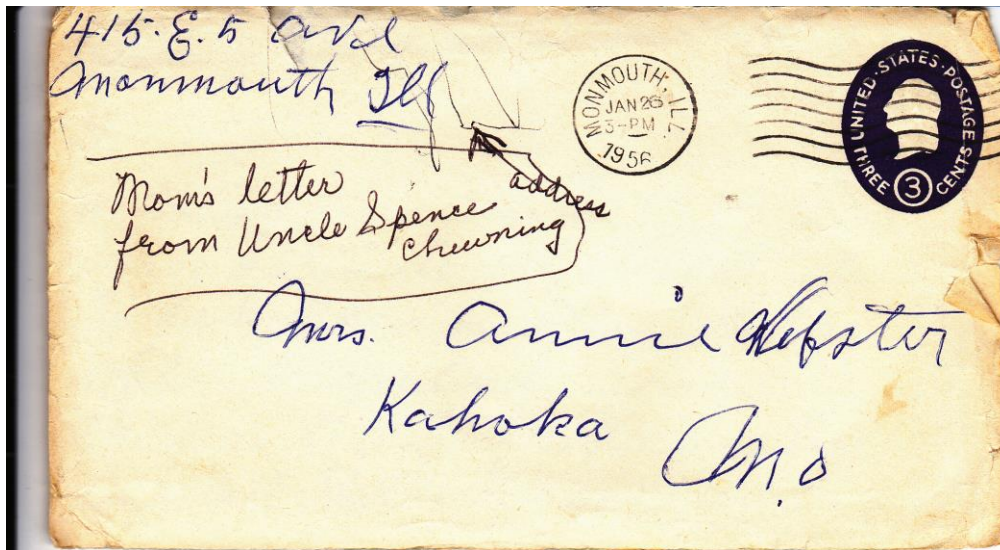 415. E. 5 Ave
Monmouth Ill
MONMOUTH, ILL.
JAN 26
3-PM
1956
UNITED·STATES·POSTAGE
THREE 3 CENTS
Mom's letter address
from Uncle Spence
Chewning
Mrs. Annie Webster
Kahoka
Mo